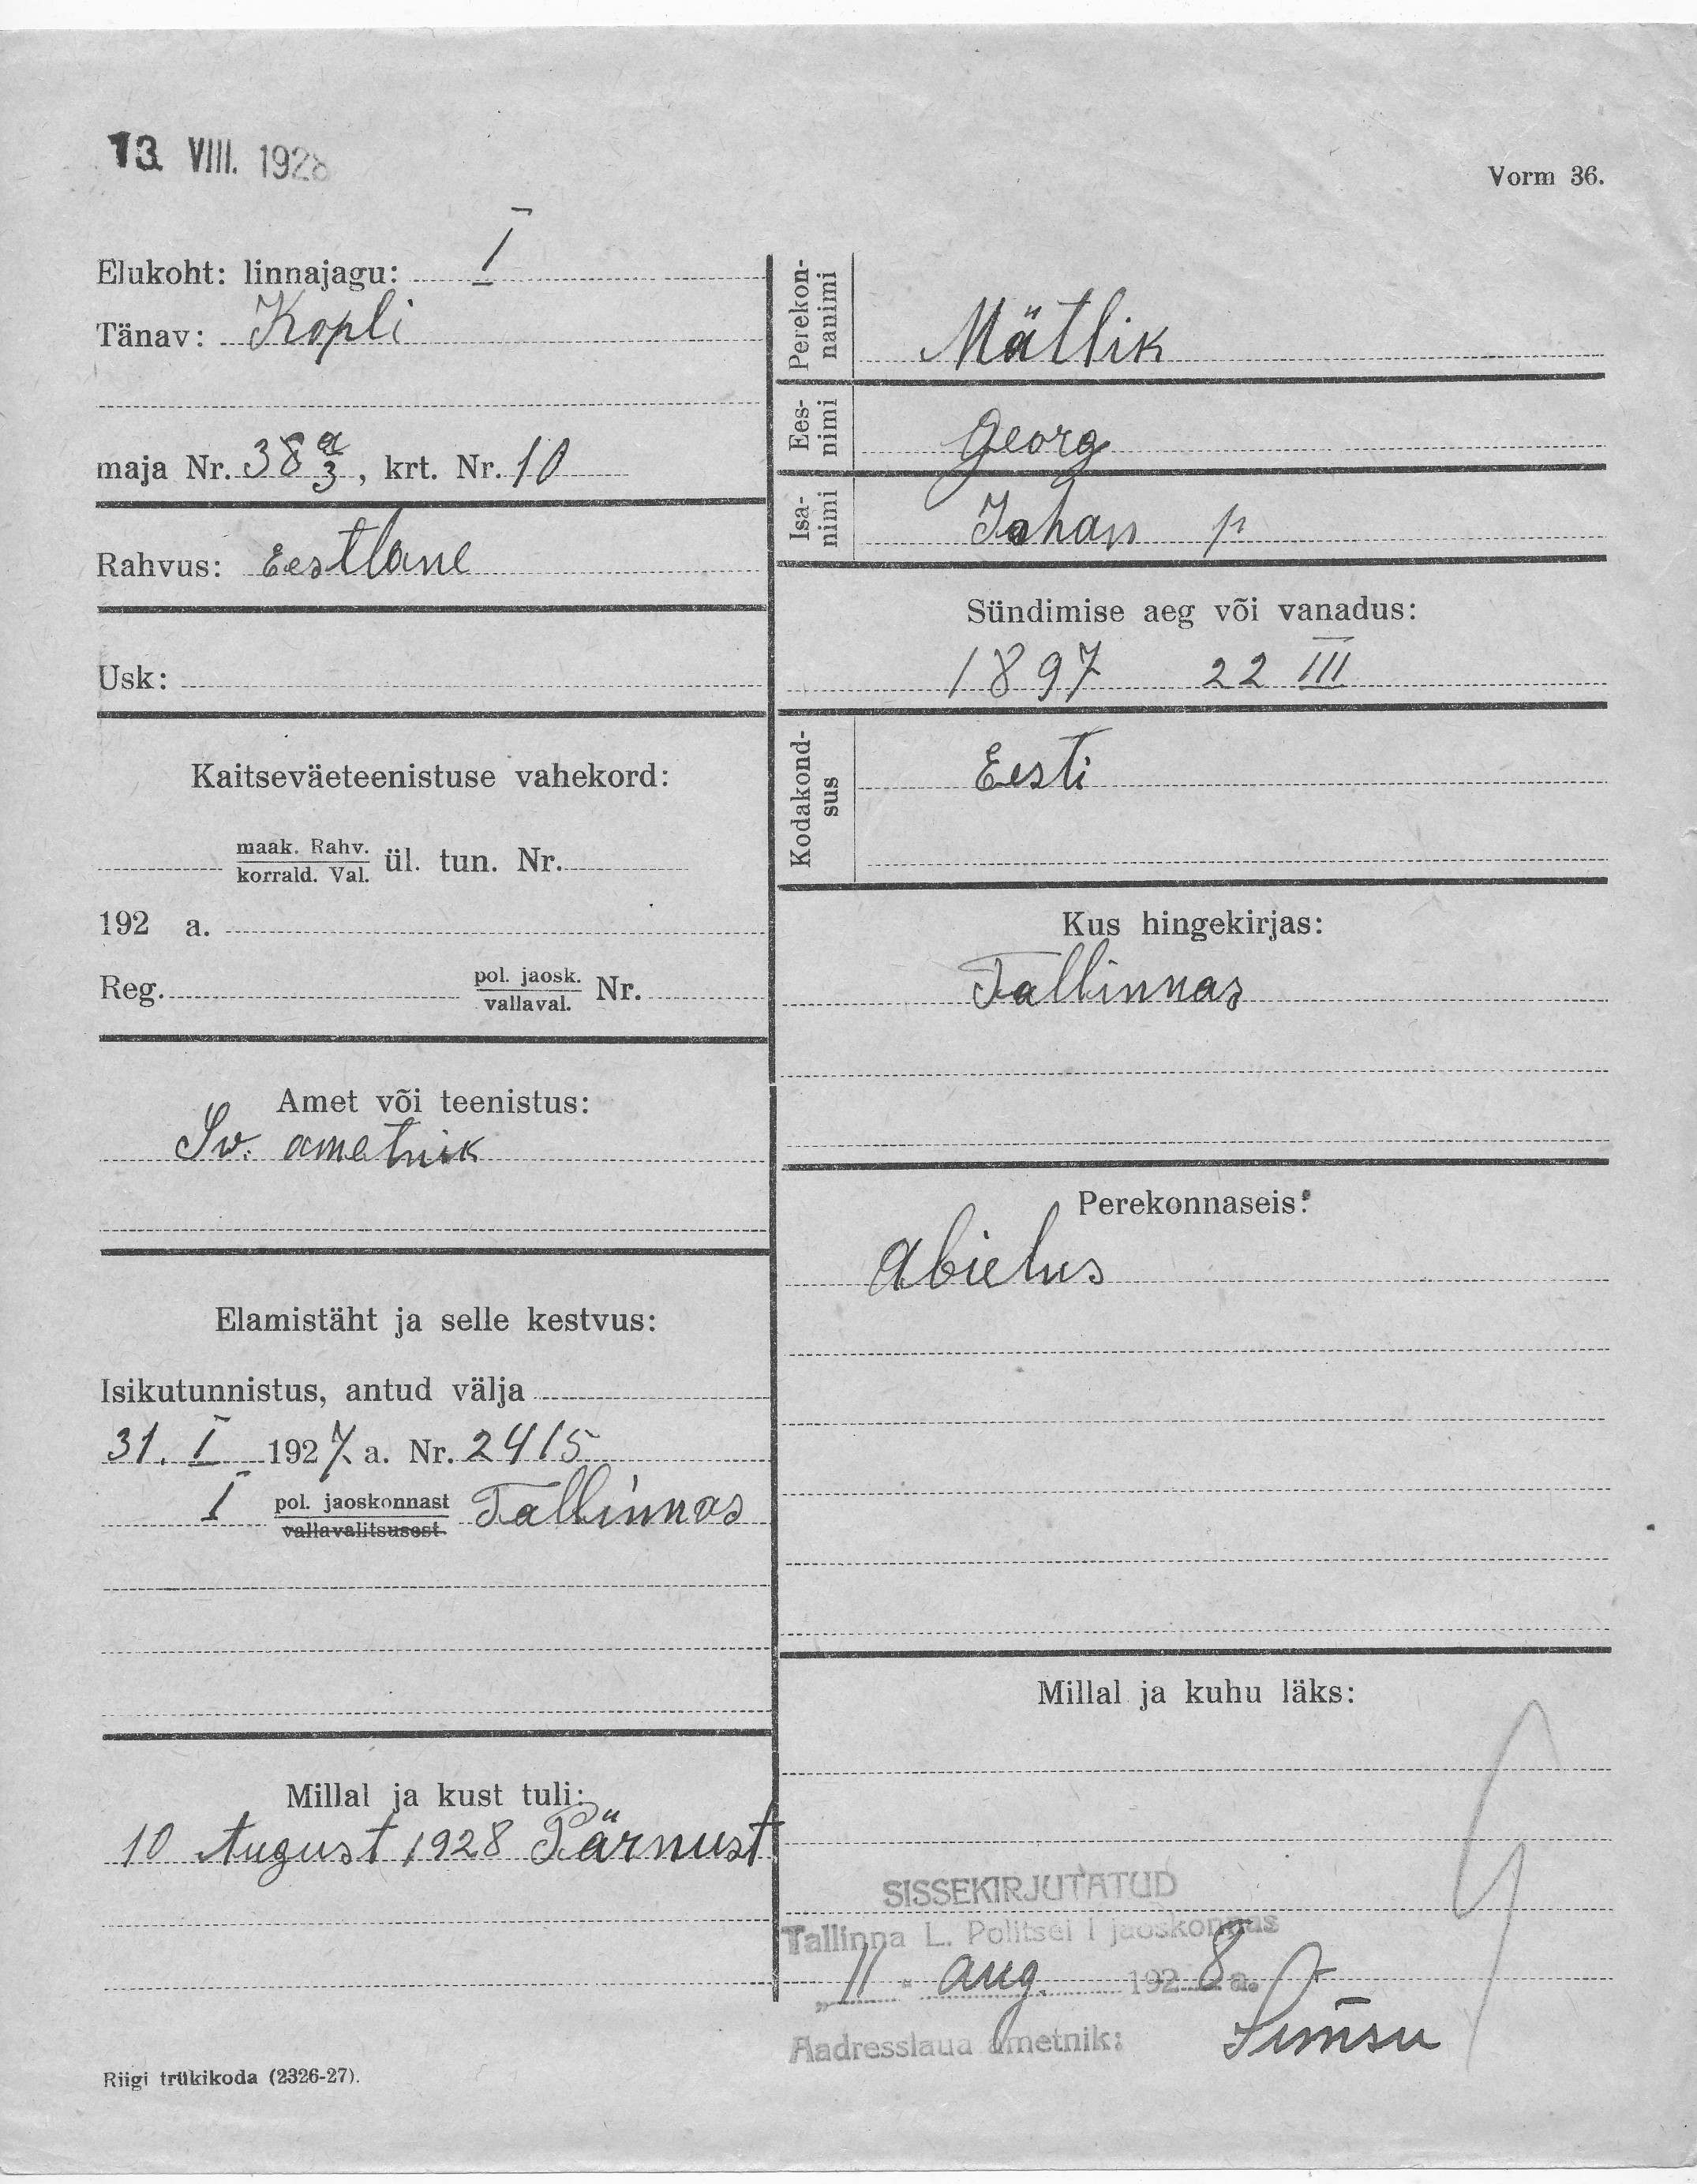 13. VIII. 1928
Vorm 36.
Elukoht: linnajagu: I
Tänav: Kopli
maja Nr. 38 a/3, krt. Nr. 10
Rahvus: Eestlane
Usk:
Kaitseväeteenistuse vahekord:
maak. Rahv.
korrald. Val. ül. tun. Nr.
192 a.
Reg. pol. jaosk.
vallaval. Nr.
Amet või teenistus:
Sv. ametnik
Elamistäht ja selle kestvus:
Isikutunnistus, antud välja
31. I 1927 a. Nr. 2415
I pol. jaoskonnast Tallinnas
vallavalitsusest
Millal ja kust tuli:
10 August 1928 Pärnust
Riigi trükikoda (2326-27).
Perekon-
nanimi
Mätlik
Ees-
nimi
Georg
Isa-
nimi
Johan p
Sündimise aeg või vanadus:
1897 22 III
Kodakond-
sus
Eesti
Kus hingekirjas:
Tallinnas
Perekonnaseis:
Abielus
Millal ja kuhu läks:
SISSEKIRJUTATUD
Tallinna L. Politsei I jaoskonnas
„11" aug. 1928 a.
Aadresslaua ametnik: